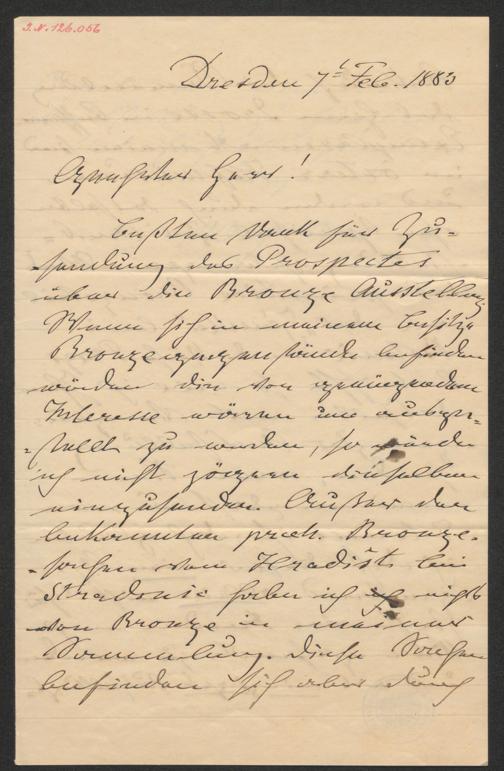 J.N. 126.056
Dresden 7t Feb. 1883
Geehrter Herr!
Besten Dank für Zu-
sendung des Prospectes
über die Bronze Ausstellung
Wenn sich in meinem Besitze
Bronzegegenstände befinden
würden die von genügendem
Interesse wären um ausge-
stellt zu werden, so würde
ich nicht zögern dieselben
einzusenden. Außer den
bekannten praeh. Bronze-
sachen vom Hradišt bei
Stradonic habe ich nichts
von Bronze in meiner
Sammlung. Diese Sachen
befinden sich aber durch